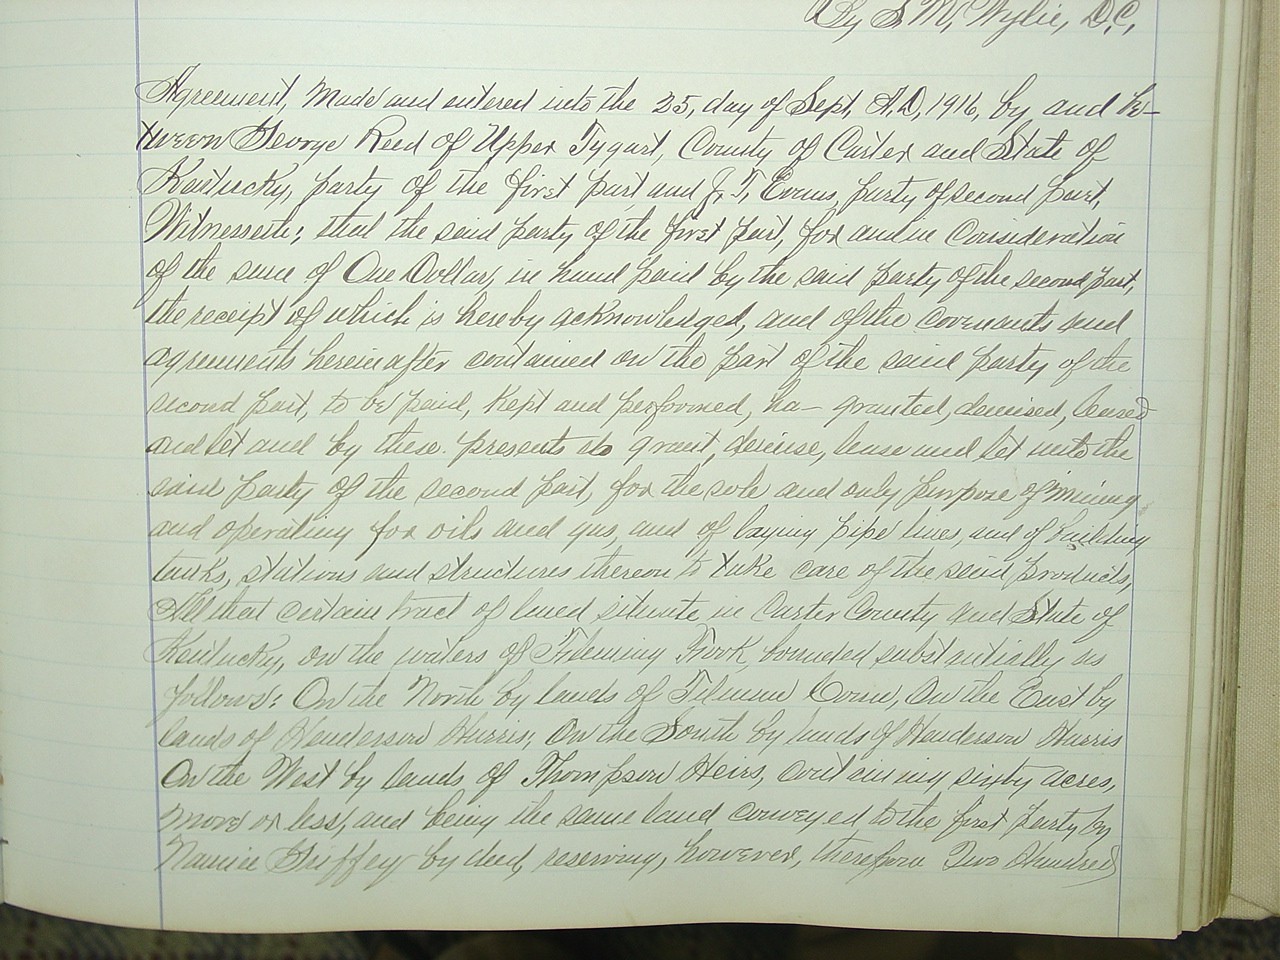 By S. M. Wylie, D.C.
Agreement, Made and entered into the 25, day of Sept, A.D, 1916, by and be-
tween George Reed of Upper Tygart, County of Carter and State of
Kentucky, party of the first part and J. T, Evans, party of second part,
Witnesseth; that the said party of the first part, for and in consideration
of the sum of One Dollar, in hand paid by the said party of the second part,
the receipt of which is hereby acknowledged, and of the covenants and
agreements hereinafter contained on the part of the said party of the
second part, to be paid, kept and performed, ha- granted, demised, leased
and let and by these presents do grant, demise, lease and let unto the
said party of the second part, for the sole and only purpose of mining
and operating for oils and gas, and of laying pipe lines, and of building
tanks, stations and structures thereon to take care of the said products,
All that certain tract of land situate in Carter County and State of
Kentucky, on the waters of Fleming Fork, bounded substantially as
follows: On the North by lands of Tilman, On the East by
lands of Henderson Harris; On the South by lands of Henderson Harris
On the West by lands of Thompson Heirs, containing sixty acres,
more or less, and being the same land conveyed to the first party by
Griffey by deed, reserving, however, therefrom Two Hundred